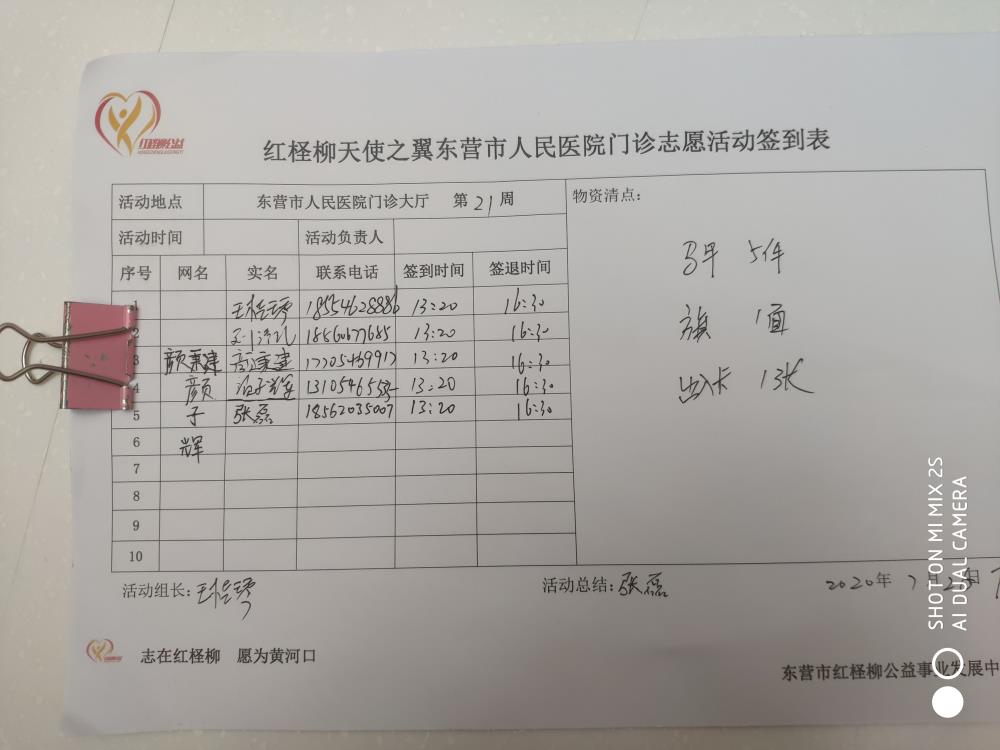 红柽柳公益
红柽柳天使之翼东营市人民医院门诊志愿活动签到表
活动地点 东营市人民医院门诊大厅 第21周 物资清点：
活动时间 活动负责人
序号 网名 实名 联系电话 签到时间 签退时间
马甲 5件
旗 1面
出入卡 1张
1 18554628886 13:20 16:30
2 18560677685 13:20 16:30
3 颜秉建 颜秉建 13:20 16:30
4 颜 13:20 16:30
5 子 张磊 18562035007 13:20 16:30
6 辉
7
8
9
10
活动组长： 活动总结：张磊 2020年7月25日
志在红柽柳 愿为黄河口
东营市红柽柳公益事业发展中
SHOT ON MI MIX 2S
AI DUAL CAMERA